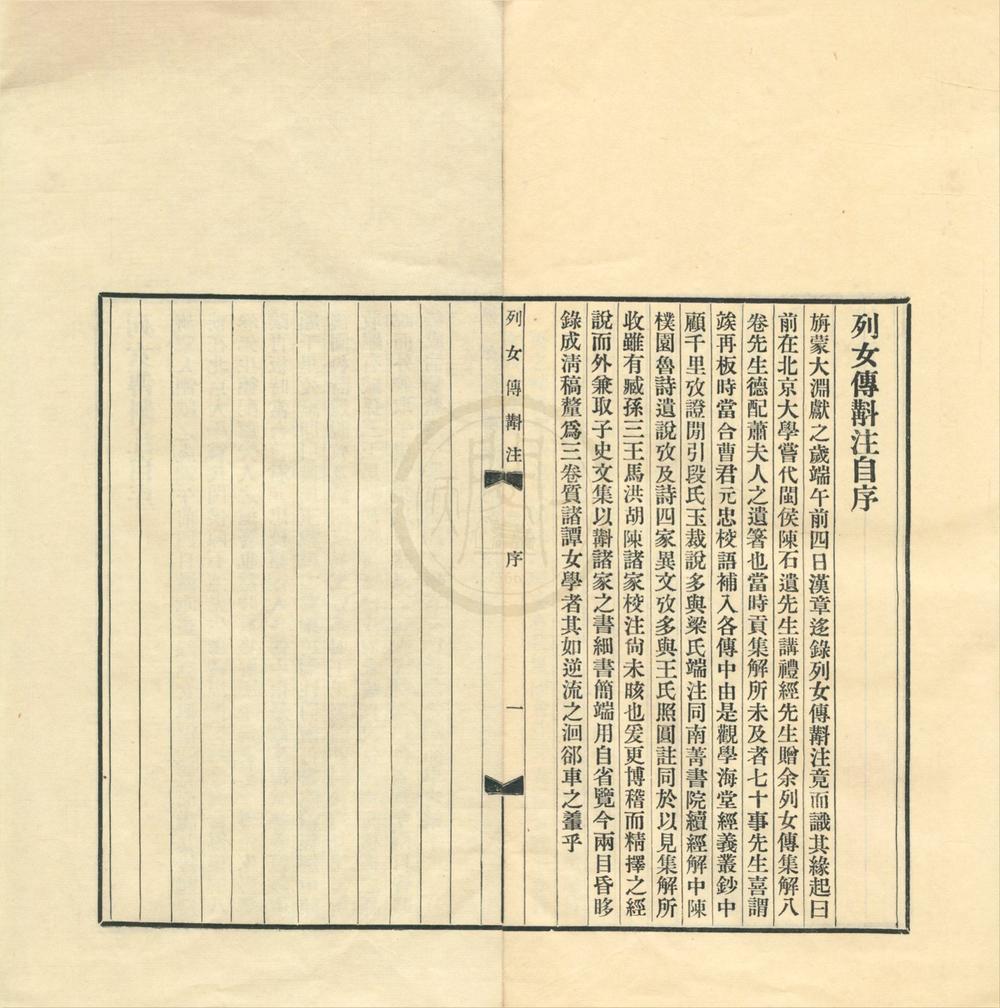 列女傳斠注自序
旃蒙大淵獻之歲端午前四日漢章迻錄列女傳斠注竟而識其緣起曰
前在北京大學嘗代閩侯陳石遺先生講禮經先生贈余列女傳集解八
卷先生德配蕭夫人之遺箸也當時貢集解所未及者七十事先生喜謂
竢再板時當合曹君元忠校語補入各傳中由是觀學海堂經義叢鈔中
顧千里攷證閒引段氏玉裁說多與梁氏端注同南菁書院續經解中陳
樸園魯詩遺說攷及詩四家異文攷多與王氏照圓註同於以見集解所
收雖有臧孫三王馬洪胡陳諸家校注尙未晐也爰更博稽而精擇之經
說而外兼取子史文集以斠諸家之書細書簡端用自省覽今兩目昏眵
錄成淸稿釐爲三卷質諸譚女學者其如逆流之洄郤車之乎
列女傳斠注 序 一